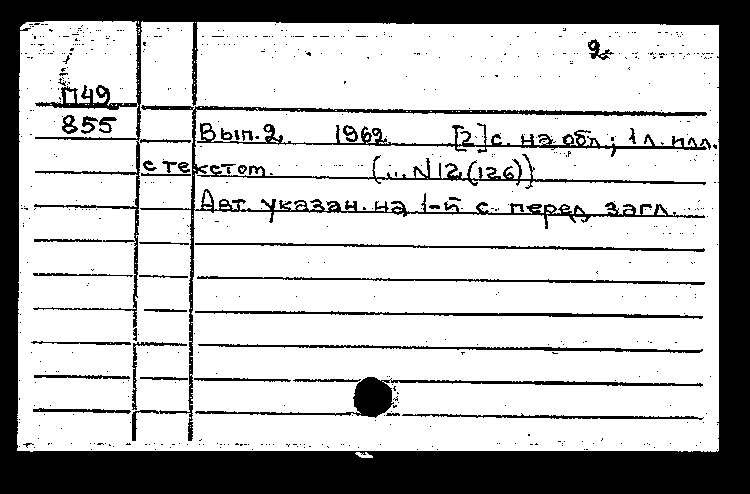 2.
П49
855
Вып.2. 1962 [2]с. на обл.; 1л. илл.
с текстом. (... N12(126))
Авт. указан. на 1-й с. перед загл.